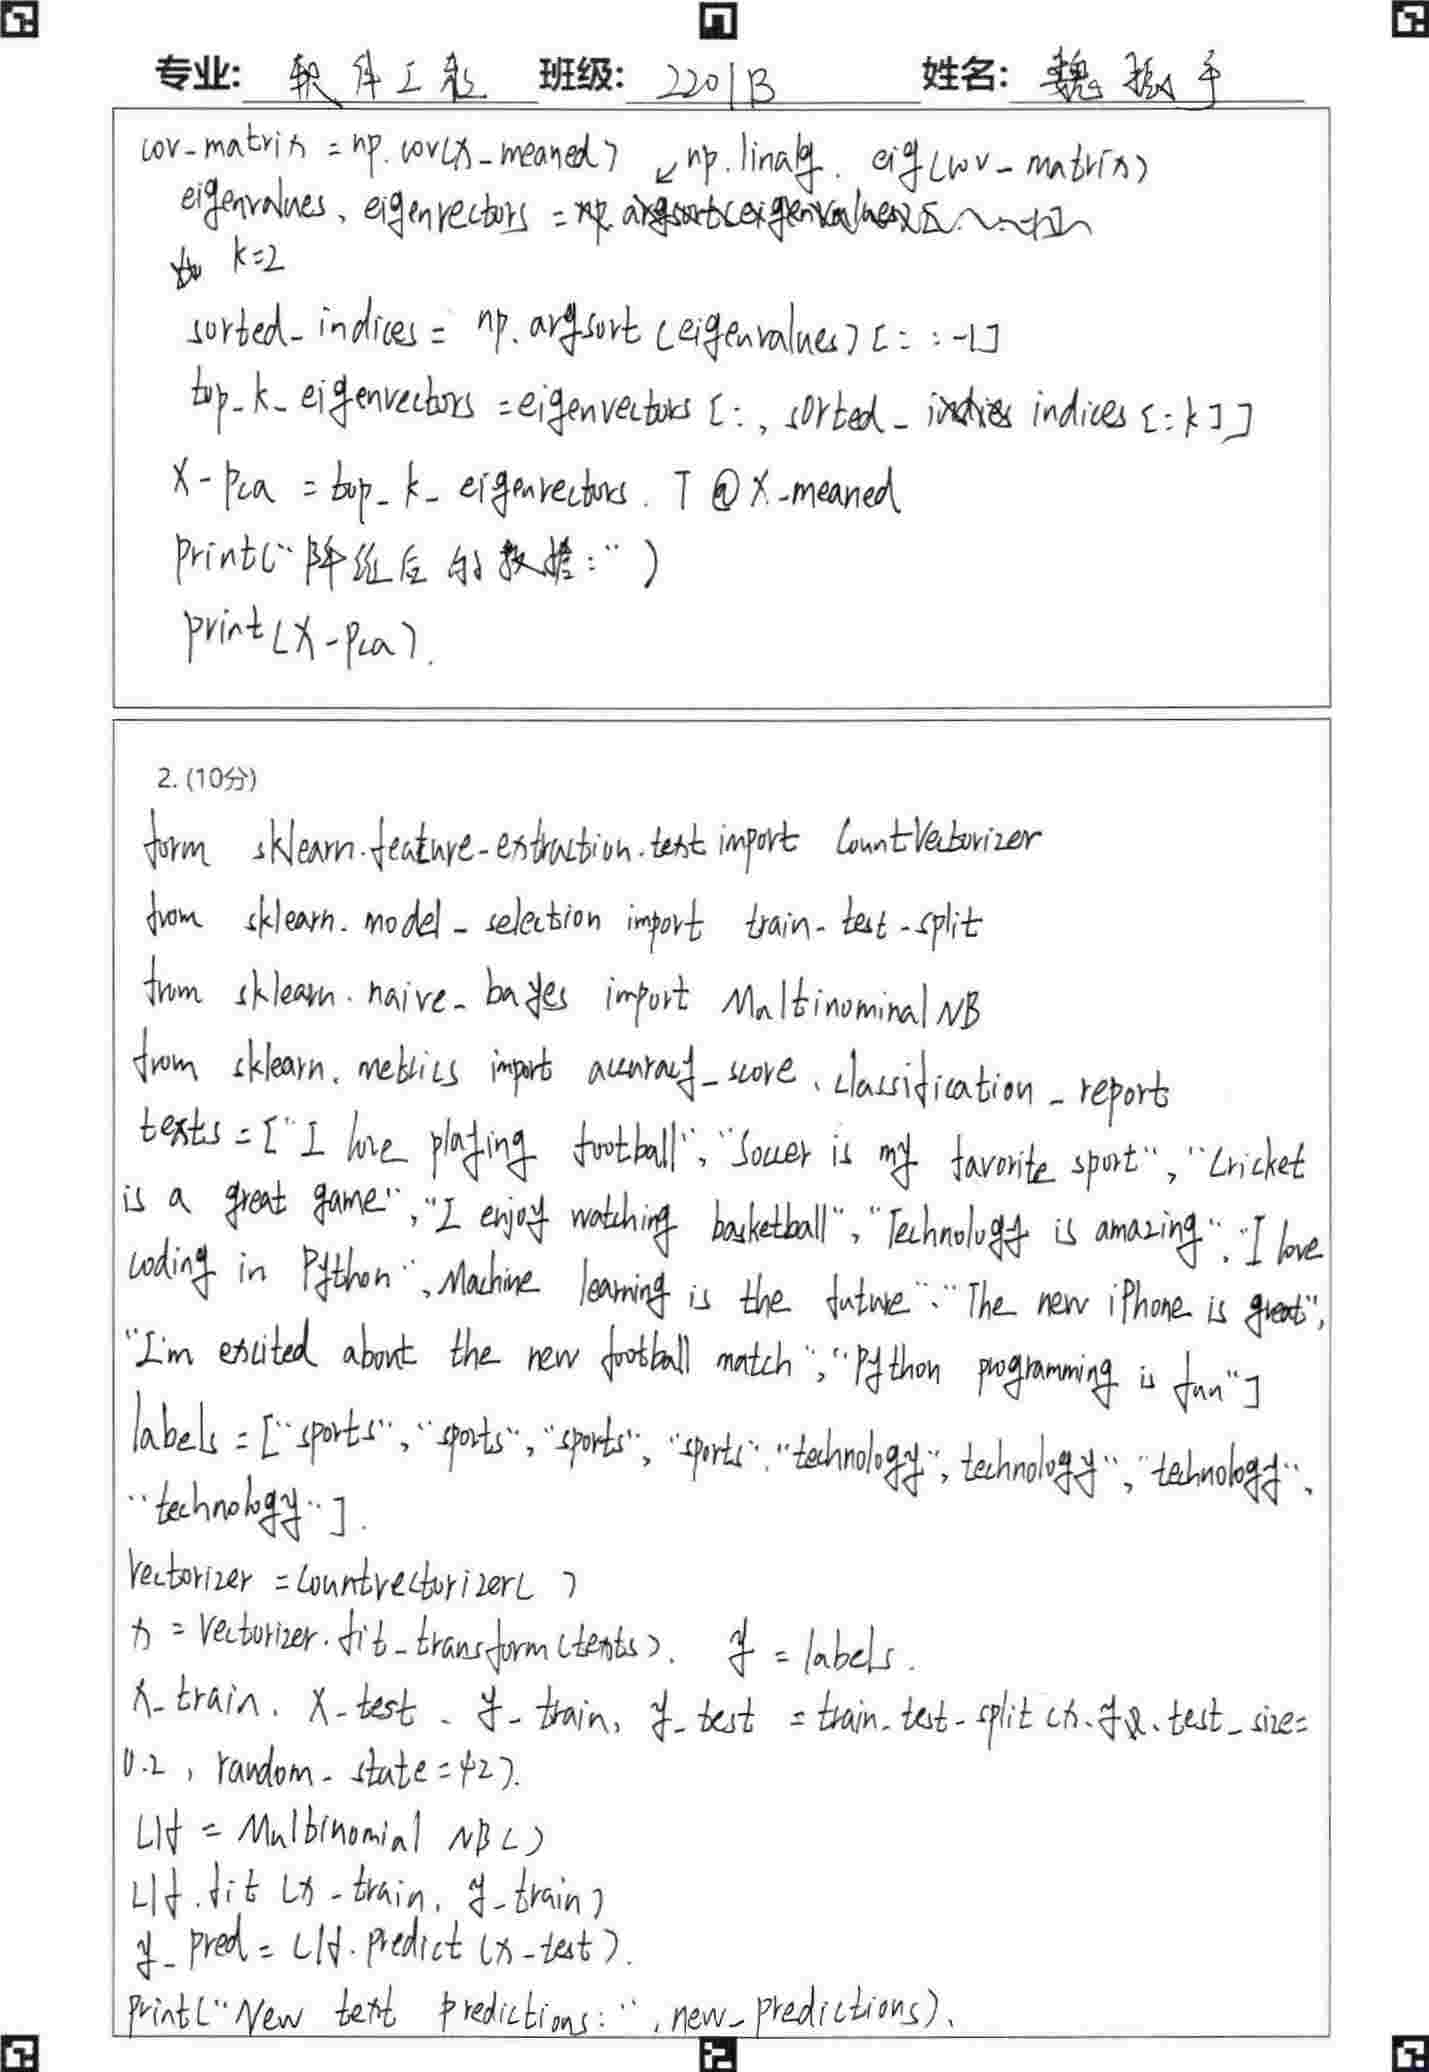 专业: 软件工程 班级: 2201B 姓名: 魏振宇
cov_matrix = np.cov(X_meaned) ↙ np.linalg. eig(cov_matrix)
eigenvalues, eigenvectors = np.argsort(eigenvalues)[
k=2
sorted_indices = np.argsort(eigenvalues)[::-1]
top_k_eigenvectors = eigenvectors[:, sorted_ indices[:k]]
X-pca = top_k_eigenvectors.T @ X-meaned
print("降维后的数据:")
print(X-pca).
2. (10分)
form sklearn.feature_extraction.text import CountVectorizer
from sklearn.model_selection import train-test-split
from sklearn.naive_bayes import MultinominalNB
from sklearn.metrics import accuracy_score, classification_report
texts = ["I love playing football", "Soccer is my favorite sport", "Cricket
is a great game", "I enjoy watching basketball", "Technology is amazing", "I love
coding in Python", Machine learning is the future", "The new iPhone is great",
"I'm excited about the new football match", "Python programming is fun"]
labels = ["sports", "sports", "sports", "sports", "technology", technology", "technology",
"technology"].
Vectorizer = Countvectorizer( )
x = Vectorizer.fit_transform(texts). y = labels.
X_train, X_test, y_train, y_test = train_test_split(x, y, test_size=
0.2, random_state=42).
Clf = Multinomial NB()
Clf.fit(x_train, y_train)
y_pred = Clf.predict(x_test).
print("New text predictions:", new_predictions).